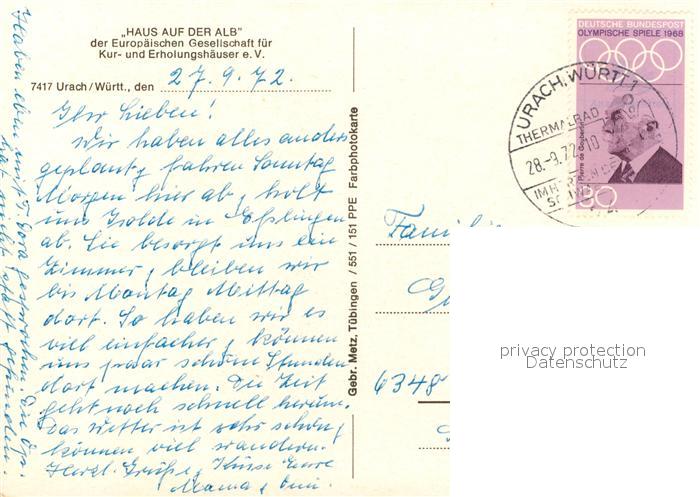 „HAUS AUF DER ALB"
der Europäischen Gesellschaft für
Kur- und Erholungshäuser e. V.
7417 Urach/Württ., den 27.9.72.
Ihr Lieben!
Wir haben alles anders
geplant, fahren Sonntag
Morgen hier ab, holt
uns Isolde in Eßlingen
ab. Sie besorgt uns ein
Zimmer, bleiben wir
bis Montag Mittag
dort. So haben wir es
viel einfacher, können
uns paar schöne Stunden
dort machen. Die Zeit
geht noch schnell herum.
Das Wetter ist sehr schön,
können viel wandern.
Herzl. Grüße, Küsse Eure
Mama
Haben eben mit T. Dora gesprochen. Die
hat nicht statt gefunden.
Gebr. Metz, Tübingen / 551 / 151 PPE Farbphotokarte
DEUTSCHE BUNDESPOST
OLYMPISCHE SPIELE 1968
Pierre de Coubertin
URACH, WÜRTT 1
THERMALBAD
28.-9.72-10
IM
Familie
6348
privacy protection
Datenschutz